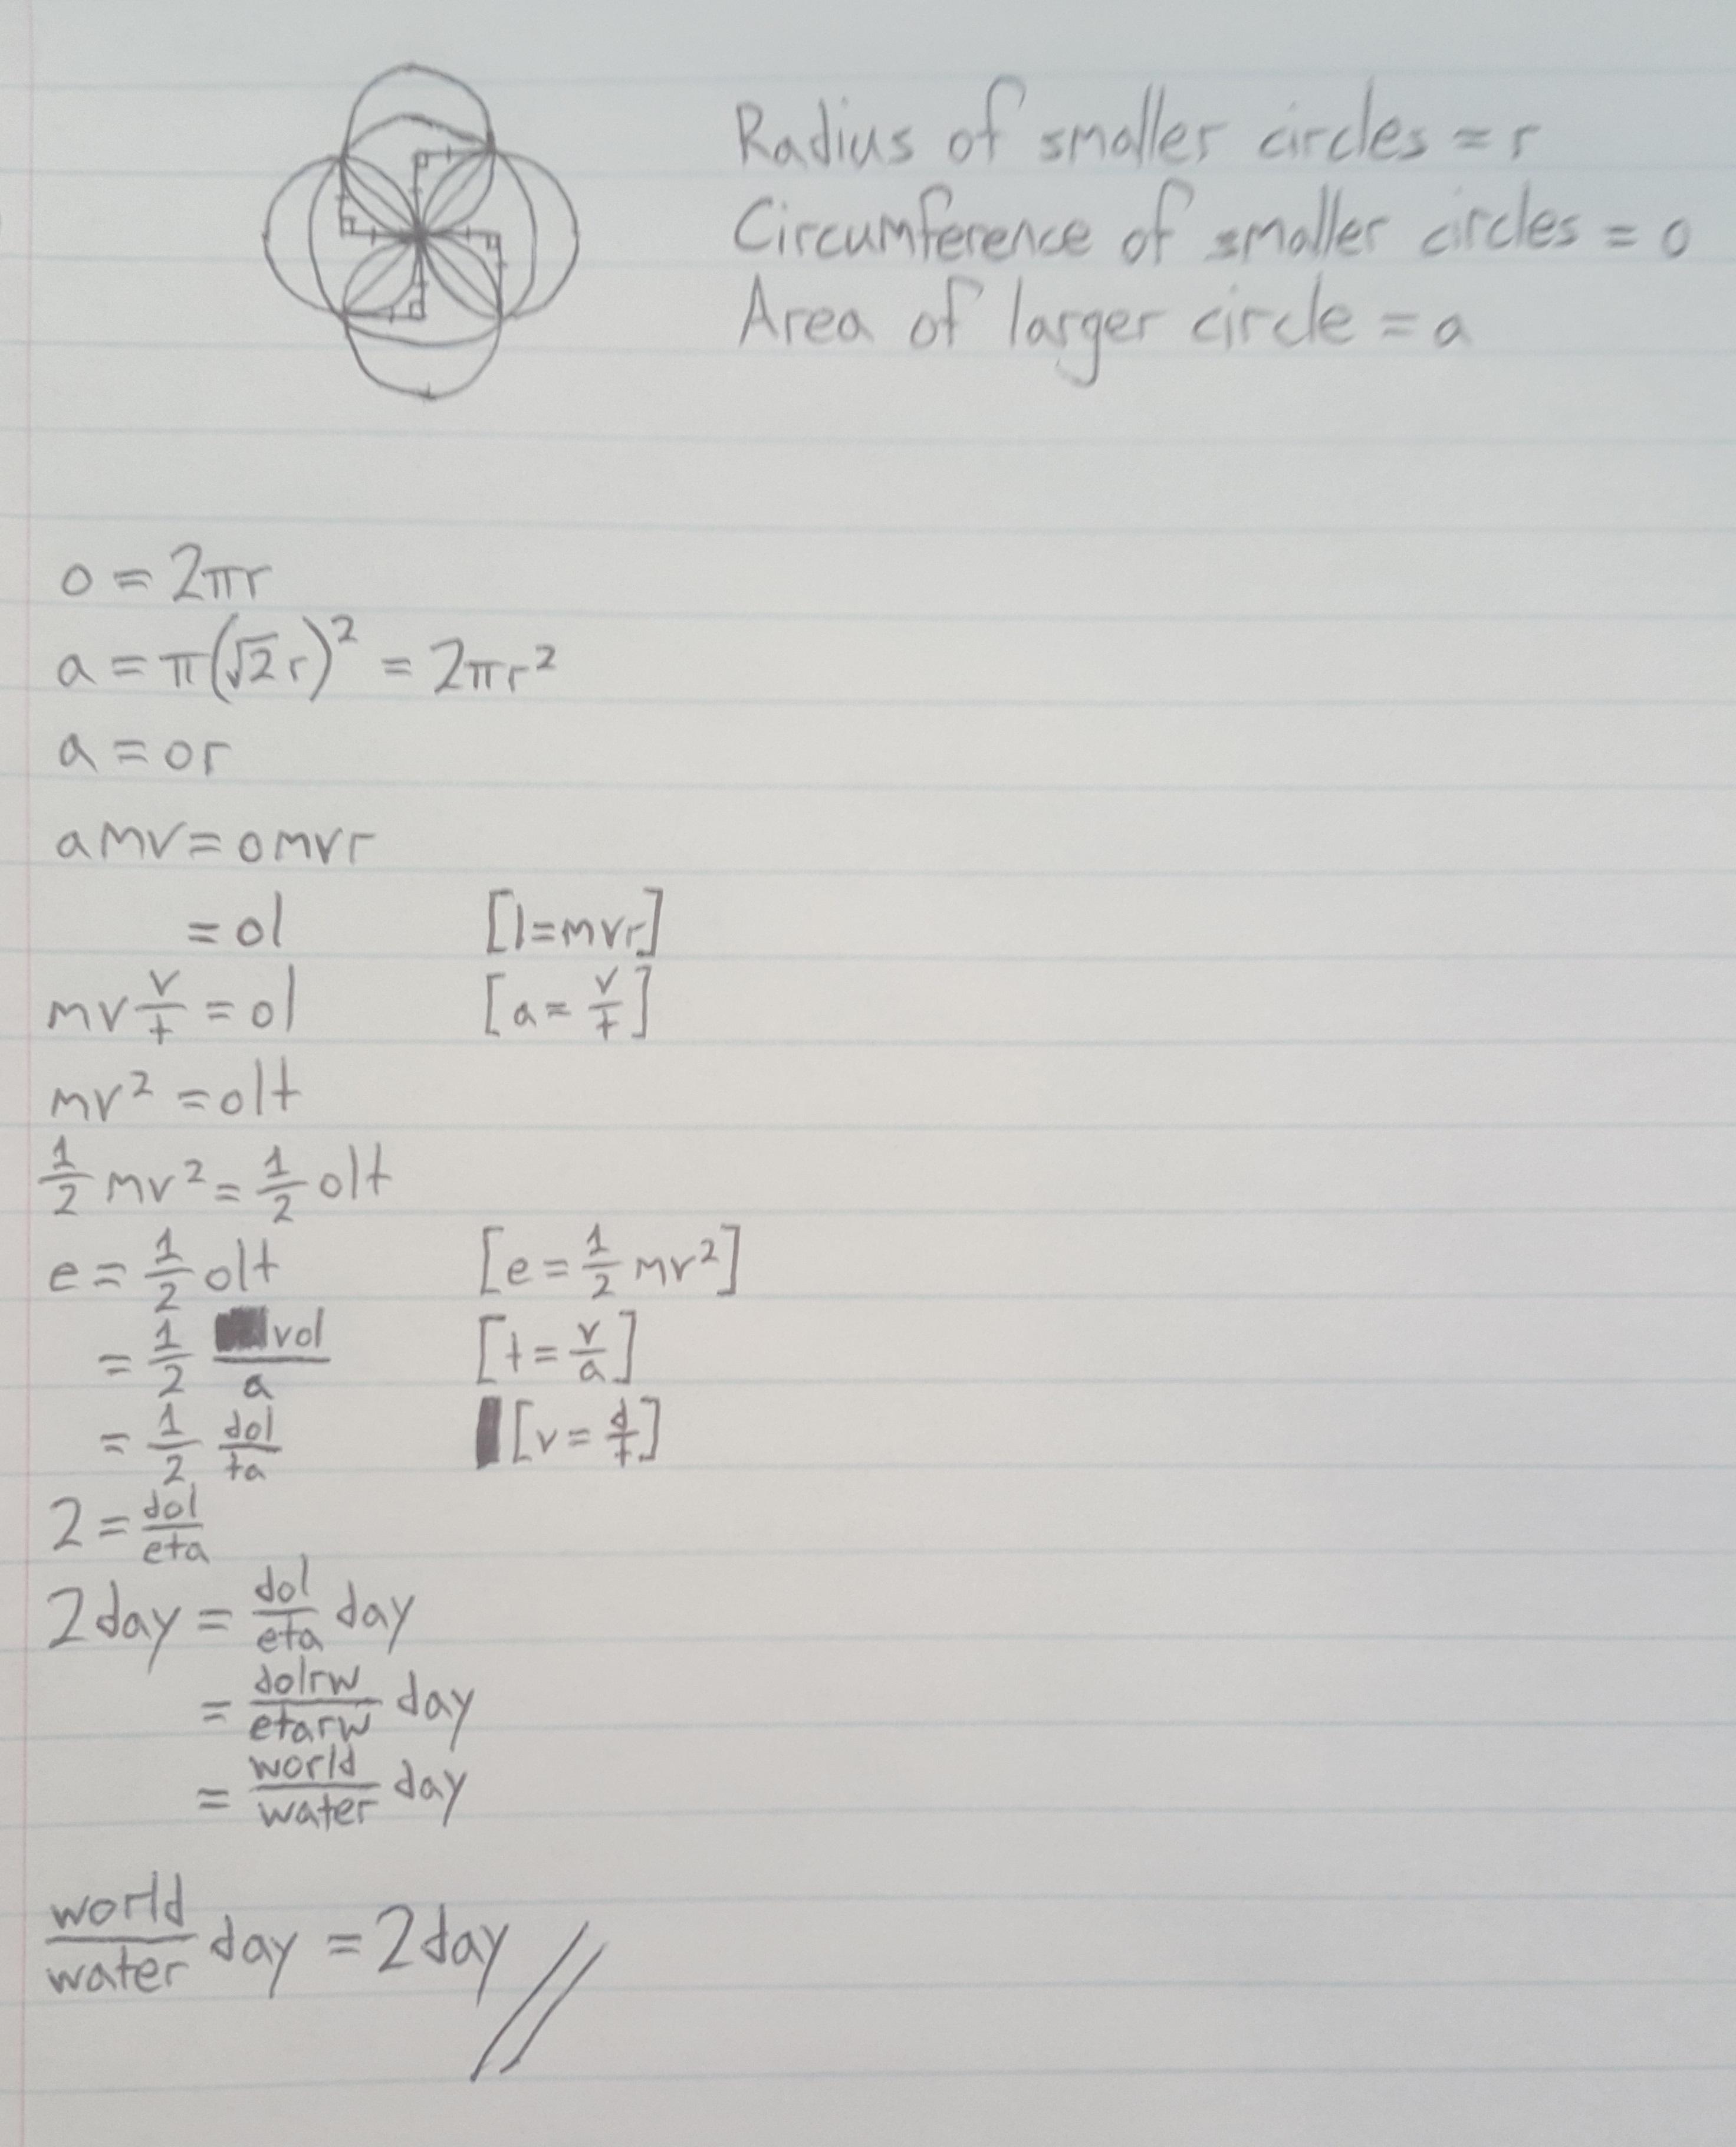 Radius of smaller circles = r
Circumference of smaller circles = o
Area of larger circle = a
o = 2πr
a = π(√2 r)² = 2πr²
a = or
amv = omvr
= ol [l=mvr]
mv v/t = ol [a = v/t]
mv² = olt
1/2 mv² = 1/2 olt
e = 1/2 olt [e = 1/2 mv²]
= 1/2 vol/a [t = v/a]
= 1/2 dol/ta [v = d/t]
2 = dol/eta
2day = dol/eta day
= dolrw/etarw day
= world/water day
world/water day = 2day //